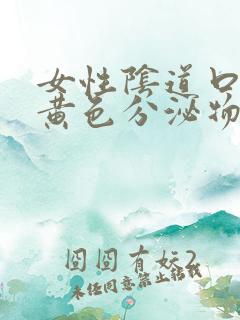 女性陰道口
黄色分泌物
囧囧有妖2
未经同意禁止转载